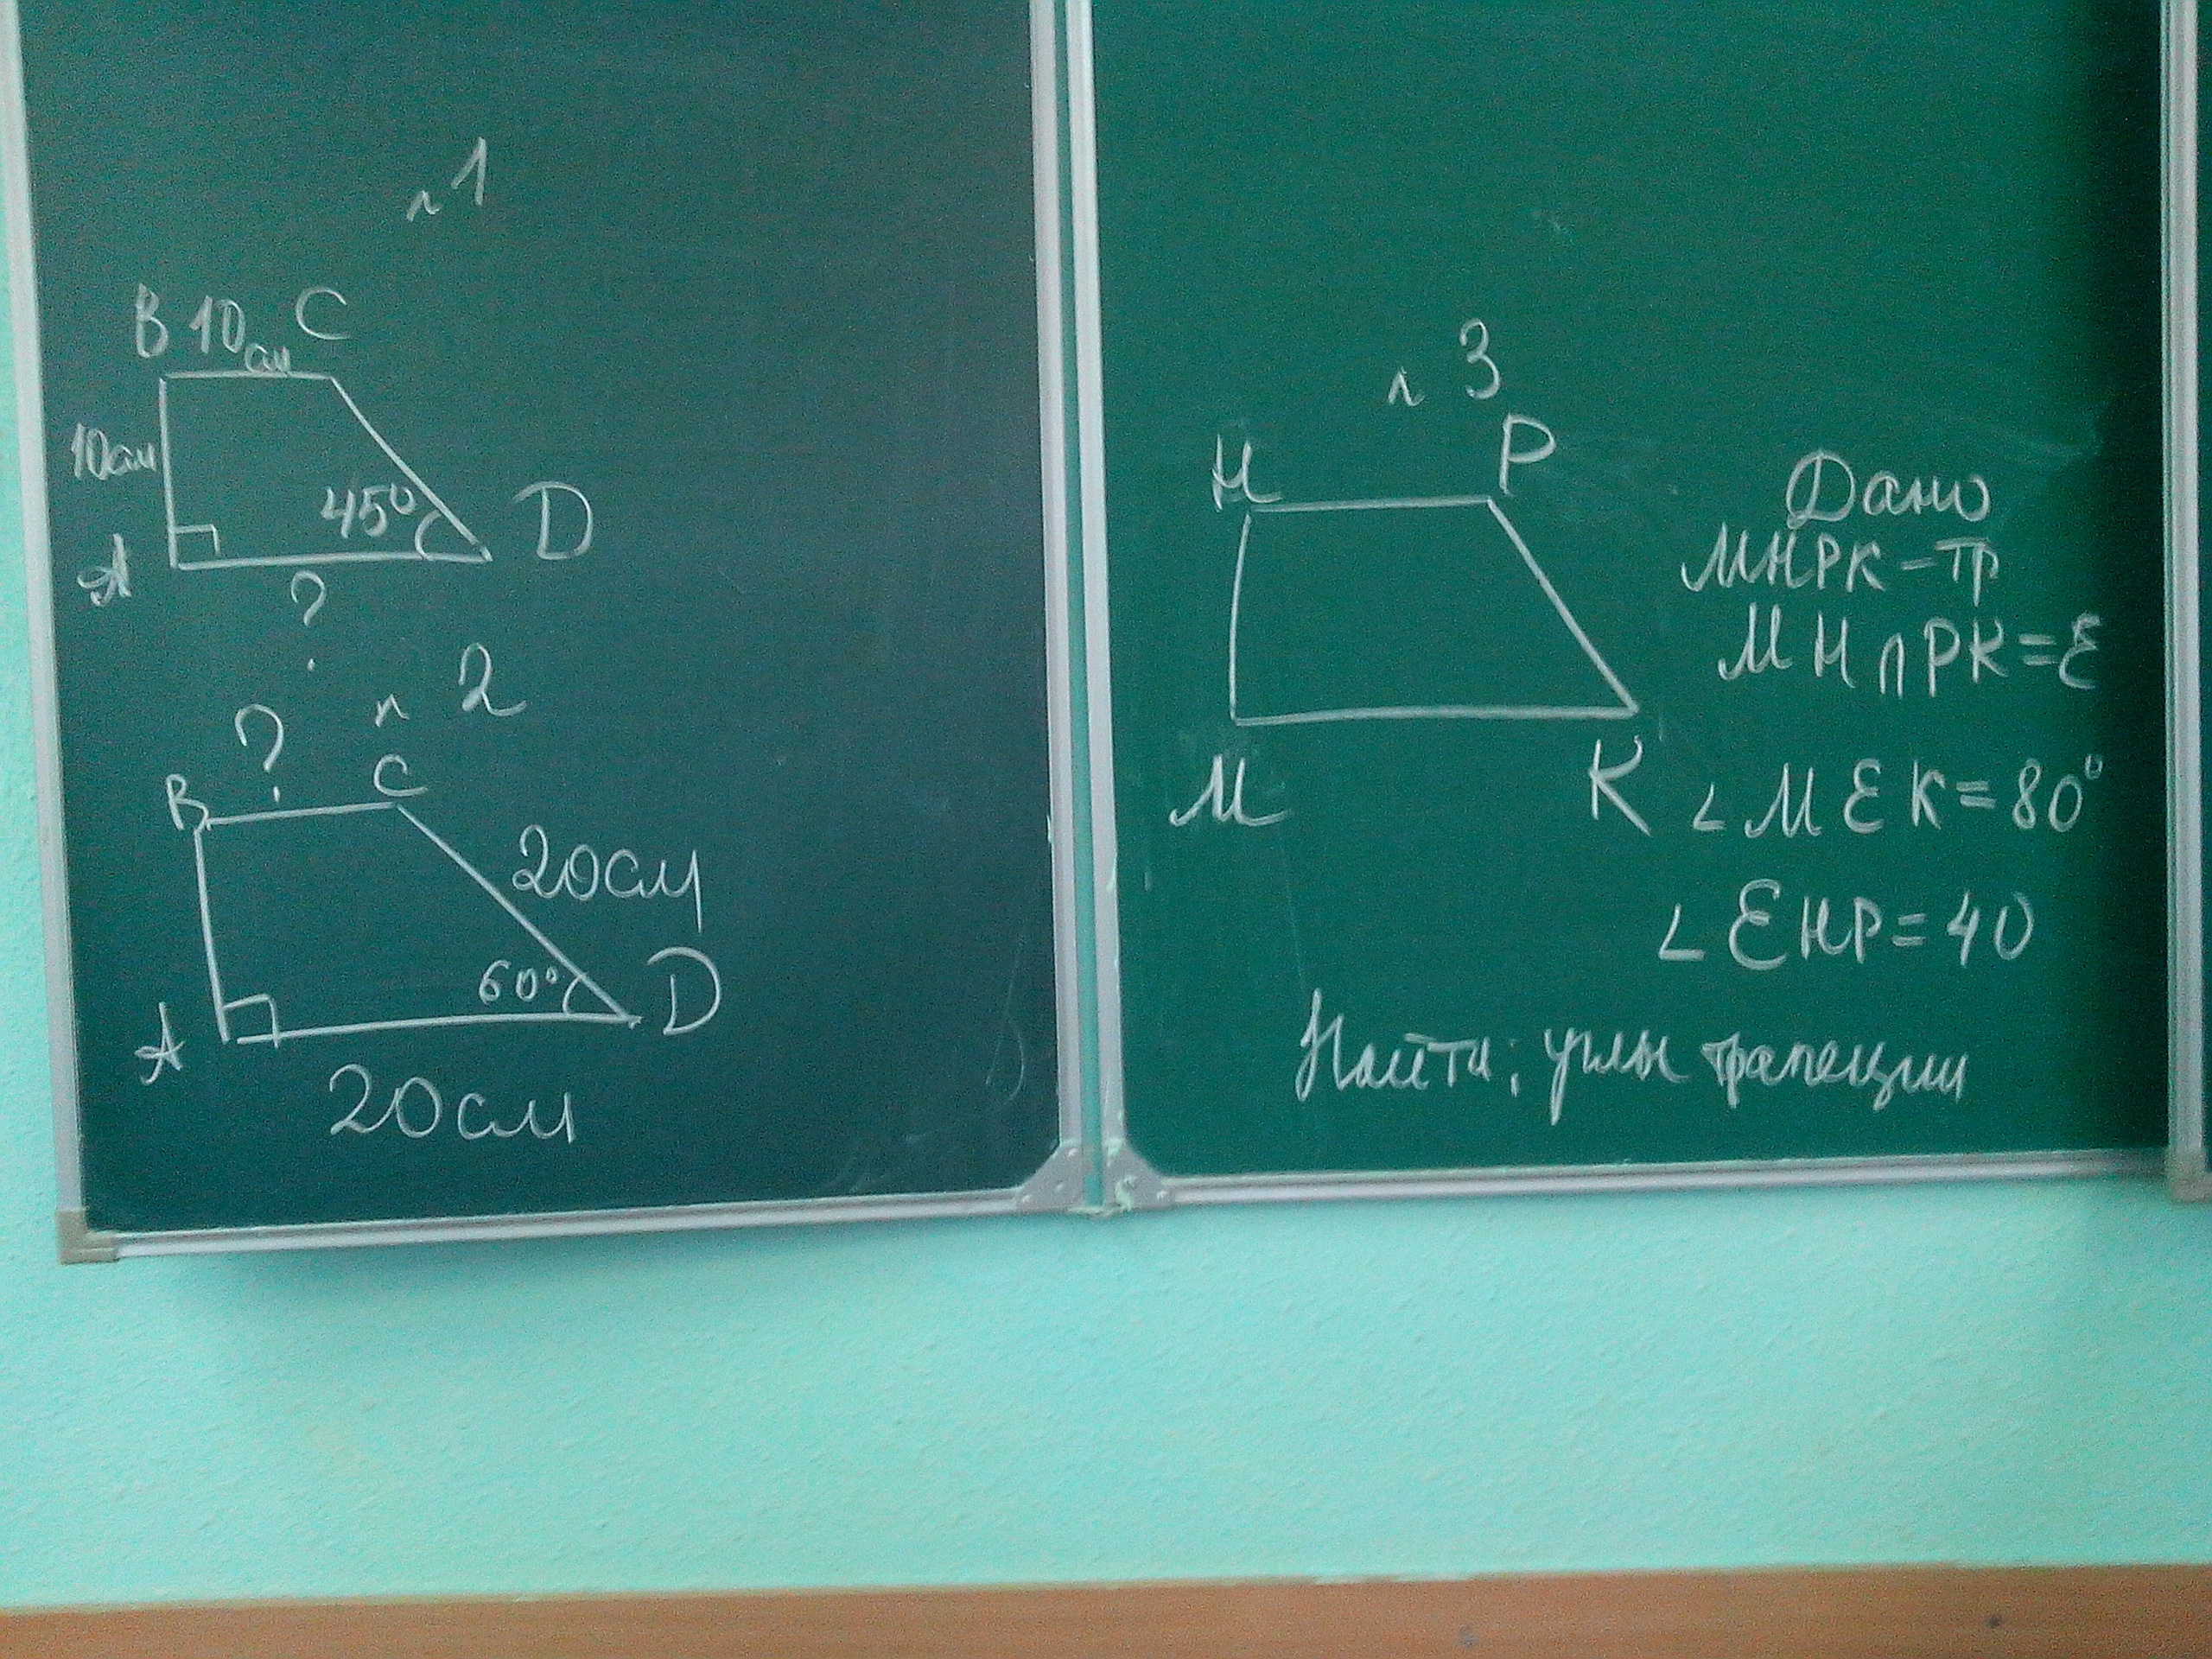 n 1
B 10см C
10см
45°
A
D
?
n 2
?
B
C
20см
60°
A
D
20см
n 3
H
P
M
K
Дано
МНРК - тр
МН ∩ РК = Е
∠ МЕК = 80°
∠ ЕНР = 40
Найти; углы трапеции